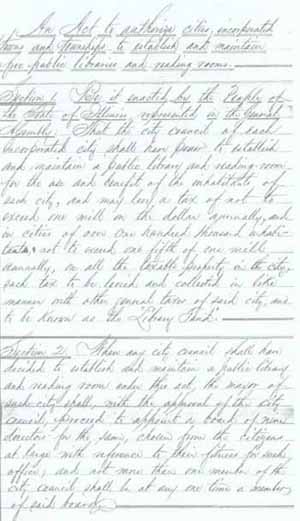 An Act to authorize cities, incorporated
towns and townships to establish and maintain
free public libraries and reading rooms.
Section 1. Be it enacted by the People of
the State of Illinois, represented in the General
Assembly, That the city council of each
incorporated city shall have power to establish
and maintain a public library and reading room
for the use and benefit of the inhabitants of
such city, and may levy a tax of not to
exceed one mill on the dollar annually, and
in cities of over one hundred thousand inhabi-
tants, not to exceed one fifth of one mill
annually, on all the taxable property in the city,
such tax to be levied and collected in like
manner with other general taxes of said city, and
to be known as the "Library Fund".
Section 2. When any city council shall have
decided to establish and maintain a public library
and reading room under this act, the mayor of
such city shall, with the approval of the city
council, proceed to appoint a board of nine
directors for the same, chosen from the citizens
at large with reference to their fitness for such
office; and not more than one member of the
city council shall be at any one time a member
of said board.